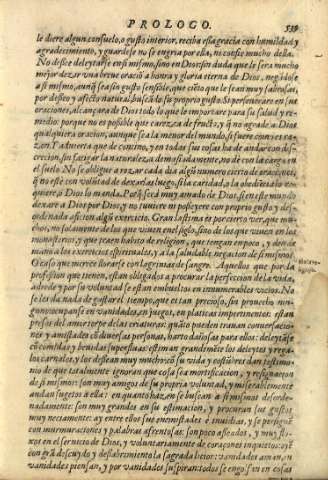 PROLOGO. 539
le diere algun consuelo, o gusto interior, reciba esta gracia con humildad y
agradecimiento, y guardese no se engria por ella, ni confie mucho della.
No desee deleytarse en si mismo, sino en Dios: sin duda que le sera mucho
mejor dezir una breve oraciō a honra y gloria eterna de Dios, negādose
a si mismo, aunq̄ sea sin gusto sensible, que ciēto que le sean muy sabrosas,
por desseo y afecto natural buscādo su propio gusto. Si perseverare en sus
oraciones, alcançara de Dios todo lo que le importare para su salud y re-
medio: porque no es possible que carezca de fructo, y q̄ no agrade a Dios
qualquiera oracion, aunque sea la menor del mundo, si fuere con essa ra-
zon. Y advierta que de contino, y en todas sus cosas ha de andar con dis-
crecion, sin fatigar la naturaleza demasiadamente, no dē con la carga en
el suelo. No se obligue a rezar cada dia algū numero cierto de oraciones,
q̄ no este con voluntad de dexarlas luego, si la caridad, o la obediēcia lo re-
quiere, o Dios lo manda. Porq̄ será muy amado de Dios, si en este mundo
dexare a Dios por Dios, y no tuviere ni posseyere con proprio gusto y des-
ordinada aficion algū exercicio. Gran lastima es por cierto ver, que mu-
chos, no solamente de los que viuen en el siglo, sino de los que viuen en los
monasterios, y que traen habito de religion, que tengan empacho, y den de
mano a los exercicios espirituales, y a la saludable negacion de si mismos.
Cosa que merece llorarse con lagrimas de sangre. Aquellos que por la
profession que tienen, estan obligados a procurar la perfeccion de la vida,
adrede y por su voluntad se estan embueltos en innumerables vicios. No
se les da nada de gastar el tiempo, que es tan precioso, sin provecho nin-
gun: ocupanse en vanidades, en juegos, en platicas impertinentes: estan
presos del amor torpe de las criaturas: quāto pueden trauan conversacio-
nes y amistades cō diuersas personas, harto dañosas para ellos: deleytāse
cō comidas y beuidas superfluas: estiman grandemēte los deleytes y rega-
los carnales, y los dessean muy mucho: cō su vida y costūbres dan testimo-
nio de que totalmente ignoran que cosa sea mortificacion, y resignacion
de si mismos: son muy amigos de su propia voluntad, y miserablemente
andan sugetos a ella: en quanto hazen se buscan a si mismos desorde-
nadamente: son muy grandes en su estimacion, y procuran sus gustos
muy neciamente: ay entre ellos sus enemistades e invidias, y se persiguē
con murmuraciones y palabras afrentosas: son poco assentados, y muy flo-
xos en el servicio de Dios, y voluntariamente de coraçones inquietos: yā
con grā descuydo y desabrimiento la sagrada licion: vanidades aman, en
vanidades piensan, y por vanidades suspiran: todos se engolfan en cosas